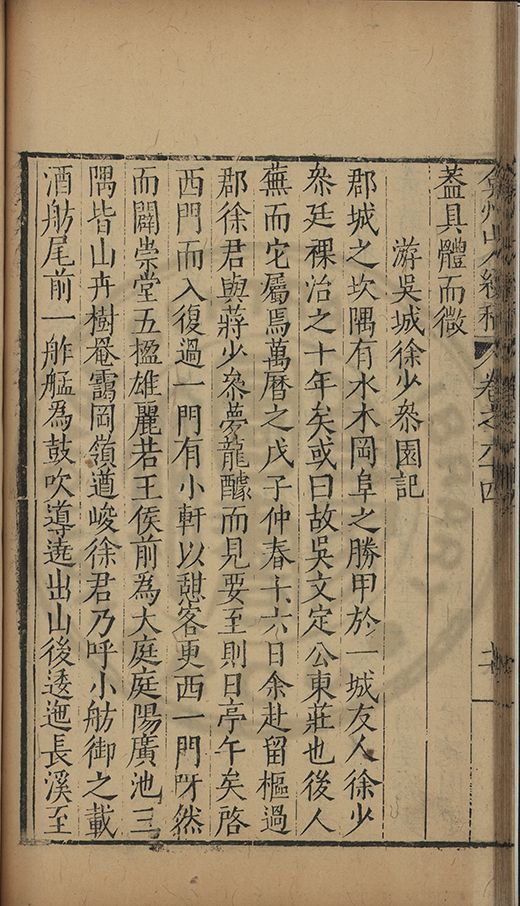 弇州山人續稿 卷之六十四
蓋具體而微
游吳城徐少叅園記
郡城之坎隅有水木岡阜之勝甲於一城友人徐少
叅廷祼治之十年矣或曰故吳文定公東莊也後人
蕪而它屬焉萬曆之戊子仲春十六日余赴留樞過
郡徐君與蔣少叅夢龍醵而見要至則日亭午矣啓
西門而入復過一門有小軒以憇客更西一門呀然
而闢崇堂五楹雄麗若王侯前為大庭庭陽廣池三
隅皆山卉樹菴靄岡嶺遒峻徐君乃呼小舫御之載
酒舫尾前一舴艋為鼓吹導遶出山後逶迤長溪至